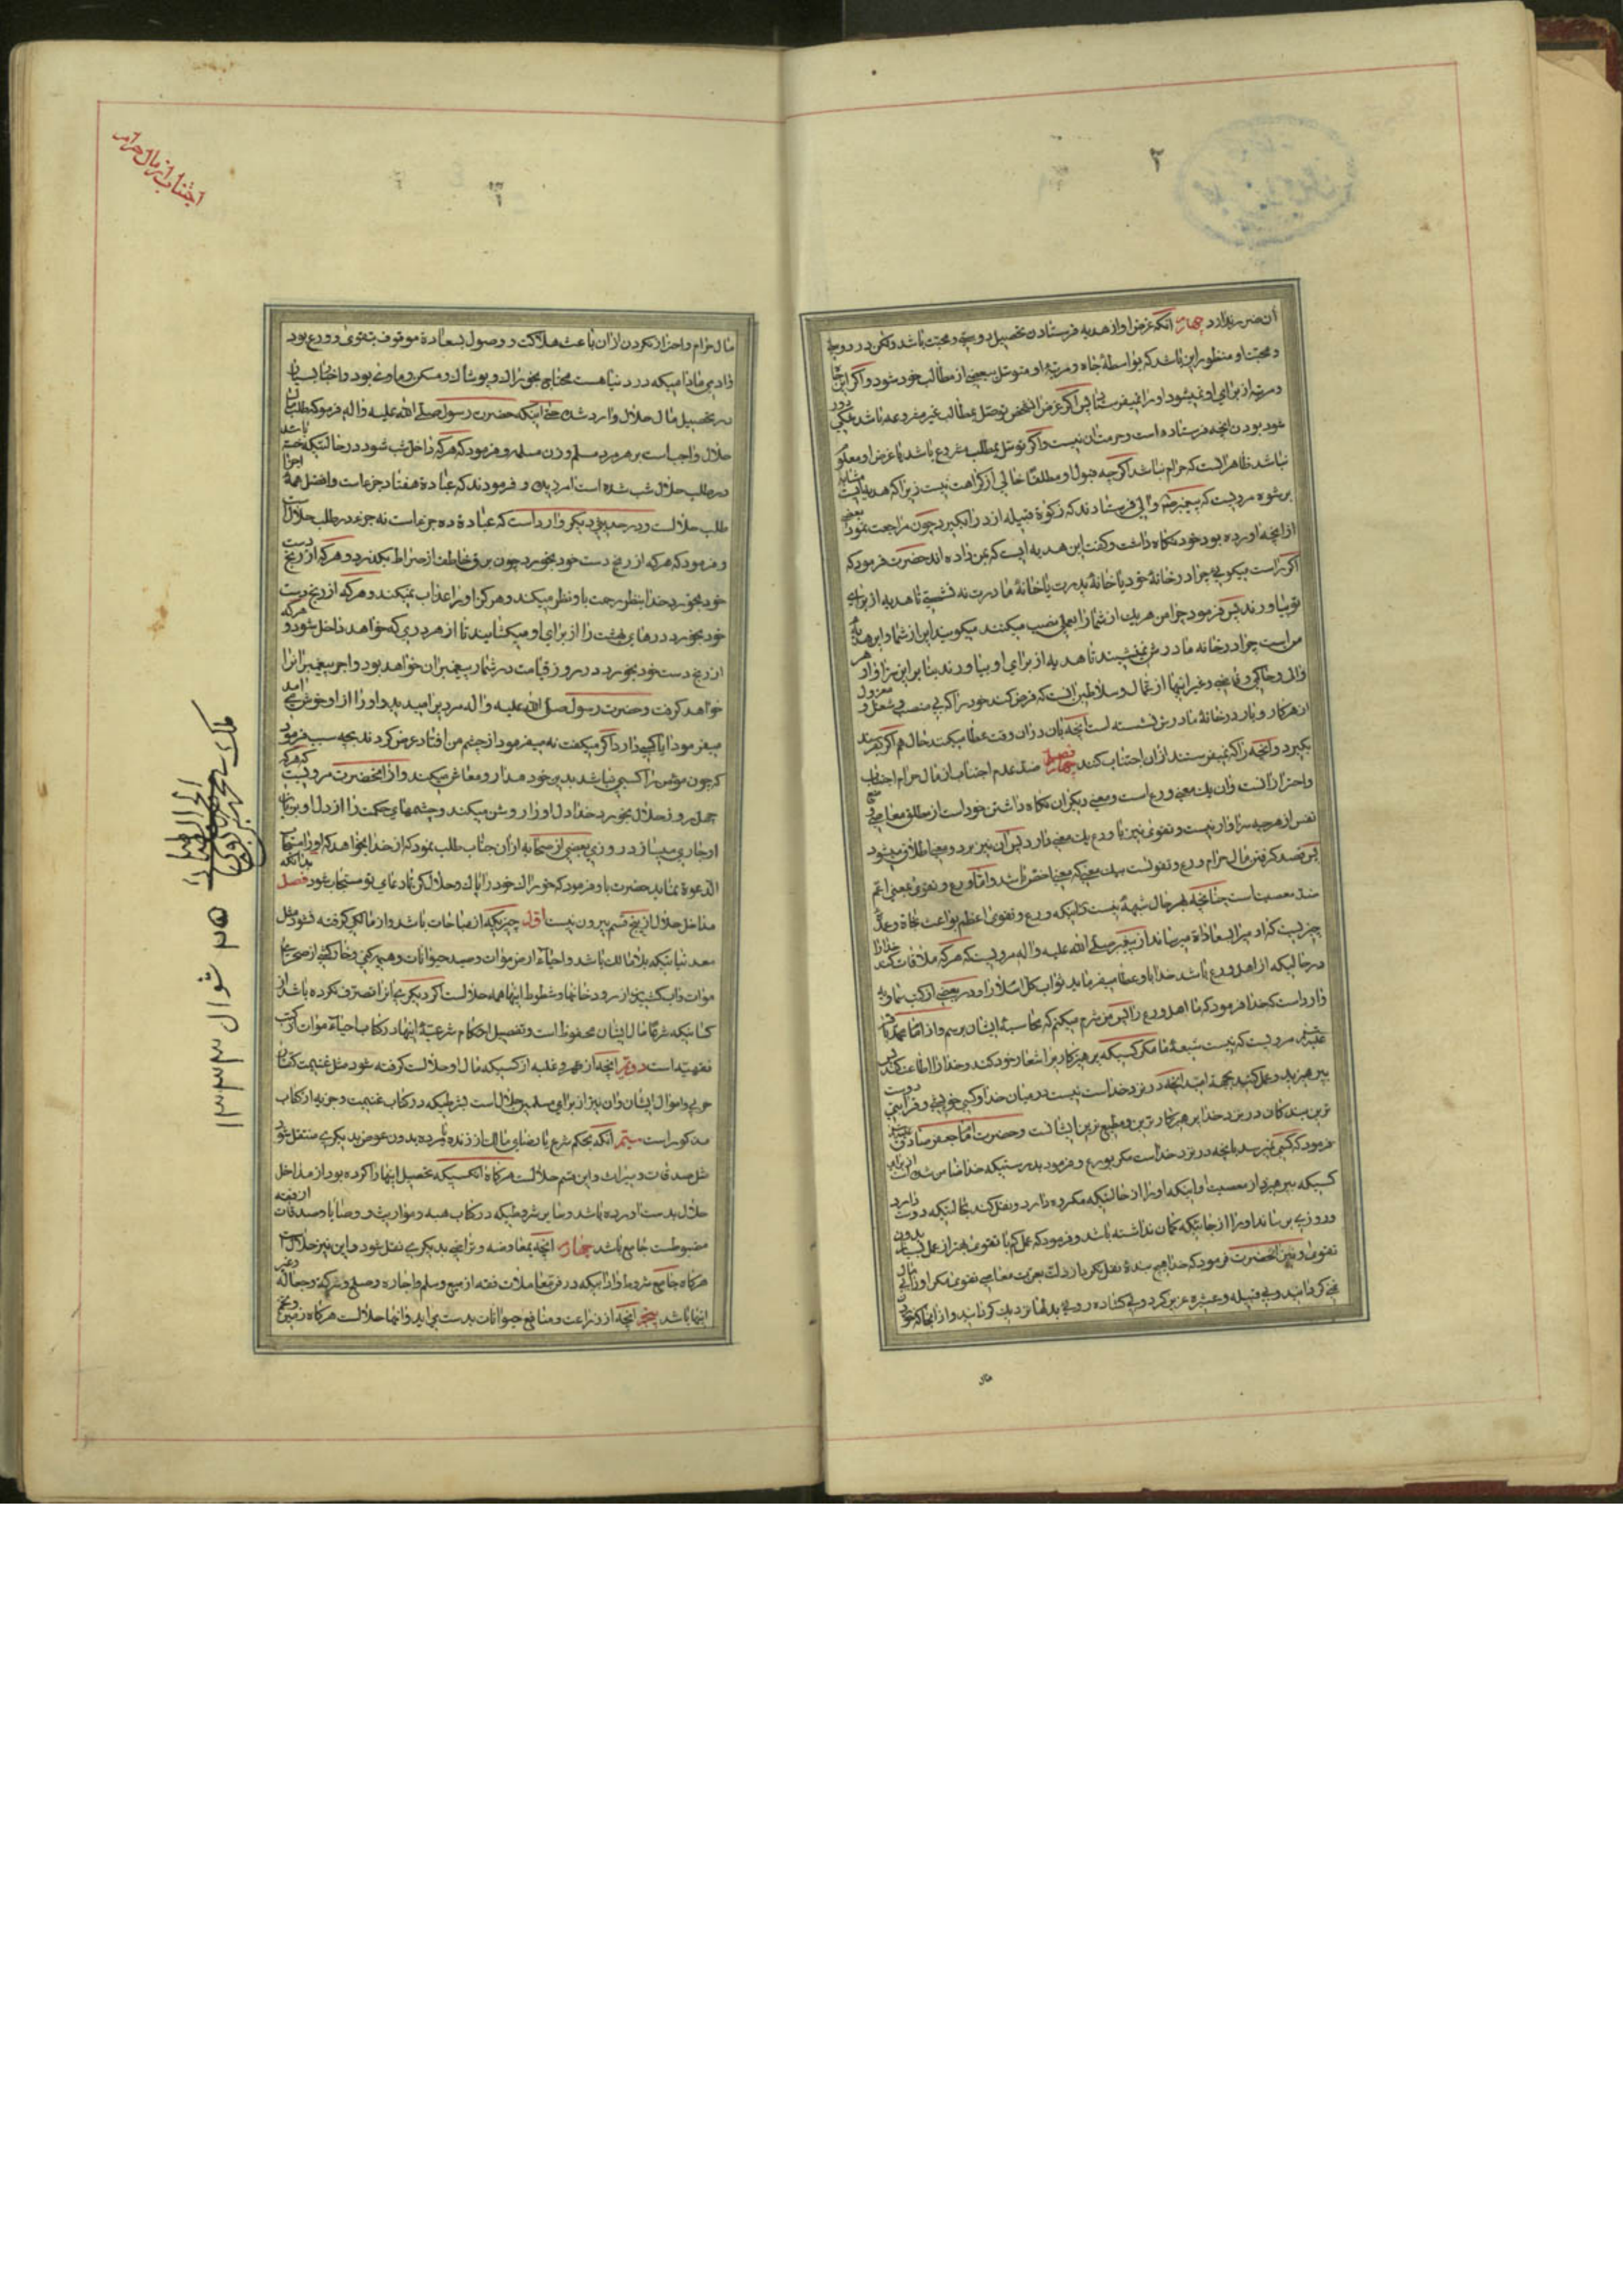 ۲
آن ضرر ندارد چهارم آنکه غرض او از هدیه فرستادن تحصیل دوستی و محبت باشد ولکن در دوستی
و محبت او منظور این باشد که بواسطهٔ جاه و مرتبهٔ او متوسل ببعضی از مطالب خود شود و اگر این جا
و مرتبه از برای او نمیشود او را نمیفرستاد پس اگر غرض آن شخص توصل بمطالب غیر مشروعه باشد
شود بودن آنچه فرستاده است و حرمت آن نیست و اگر توسل بمطلب مشروع باشد یا غرض او معلوم
نباشد ظاهر آنست که حرام نباشد اگرچه قبول او مطلقا خالی از کراهت نیست زیرا که هدیه ایست مشابه
برشوه مرویست که پیغمبر والی فرستادند که زکوة قبیله ازد را بگیرد چون مراجعت نمود بعضی
از آنچه آورده بود خود نگاه داشت و گفت این هدیه ایست که بمن داده اند حضرت فرمود که
اگر راست میگویی چرا در خانهٔ خود یا خانهٔ پدرت یا خانهٔ مادرت ننشستی تا هدیه از برای
تو بیاورند پس فرمود چرا من هر یک از شما را بعملی نصب میکنم میگویید این از شما و این هدیه
من است چرا در خانه مادرش نمینشیند تا هدیه از برای او بیاورند بنا بر این سزاوار هر
والی و حاکمی و قاضی و غیر اینها از عمال و سلاطین آنست که فرض کند خود را که بی منصب و شغل و معزول
از هر کار و بار در خانهٔ مادرش نشسته است آنچه بآن در آن وقت عطا میکنند حال هم اگر بفرستند
بگیرد و آنچه را که نمیفرستند از آن اجتناب کند فصل چهارم ضد عدم اجتناب از مال حرام اجتناب
و احتراز آنست و آن یک معنی ورع است و معنی دیگر آن نگاه داشتن خود است از مطلق معاصی و منع
نفس از هرچه سزاوار نیست و تقوی نیز با ورع یک معنی دارد پس آن نیز بر دو معنی اطلاق میشود
پس ضد گرفتن مال حرام ورع و تقوی است بیک معنی که معنی اخص باشد و اما ورع و تقوی بمعنی اعم
ضد معصیت است چنانچه بهر حال شبههٔ نیست در اینکه ورع و تقوی اعظم بواعث نجاة و عمدهٔ
چیزیست که آدمی را بسعادة میرساند از پیغمبر صلی الله علیه و آله مرویست که هر که ملاقات کند خدا را
در حالیکه از اهل ورع باشد خدا باو عطا میفرماید ثواب کل اسلام را و در بعضی از کتب سماویه
وارد است که خدا فرمود که اما اهل ورع را پس من شرم میکنم که محاسبهٔ ایشان برسم و از امام محمد باقر
علیه السلام مرویست که نیست شیعهٔ ما مگر کسیکه پرهیزکاری را شعار خود کند و خدا را اطاعت کند پس
بپرهیزید و عمل کنید بجهة امید آنچه در نزد خداست نیست در میان خدا و کسی خویشی و قرابتی دوست
ترین بندگان در نزد خدا پرهیزکارترین و مطیع ترین ایشانست و حضرت امام جعفر صادق
فرمود که کسی نمیرسد بآنچه در نزد خداست مگر بورع و فرمود بدرستیکه خدا ضامن شده است از برای
کسیکه بپرهیزد از معصیت او اینکه او را از حالتیکه مکروه دارد و نقل کند بحالتیکه دوست دارد
و روزی برساند او را از جائیکه گمان نداشته باشد و فرمود که عمل کم با تقوی بهتر از عمل بسیار بدون
تقوی و نیز آنحضرت فرمود که خدا هیچ بندهٔ نقل نکرد از ذلت بعزت معاصی تقوی مگر او را بی مال
غنی گردانید و بی قبیله و عشیره عزیز کرد و بی گشاده رویی بدلها نزدیک گردانید و از آنجا که خوردن
مال
اجتناب از مال حرام
مال حرام و احتراز نکردن از آن باعث هلاکت و وصول بسعادة موقوف بتقوی و ورع بود
و آدمی مادامیکه در دنیا هست محتاج بخوراک و پوشاک و مسکن و مأوی بود و اخبار بسیار
در تحصیل مال حلال وارد شده حتی اینکه حضرت رسول صلی الله علیه و آله فرمود که طلب مال
حلال واجب است بر هر مرد مسلم و زن مسلمه و فرمود که هر که داخل شب شود در حالتیکه خسته باشد
در طلب حلال شب شده است آمرزیده و فرمودند که عبادة هفتاد جزء است و افضل همهٔ اجزا
طلب حلال است و در حدیثی دیگر وارد است که عبادة ده جزء است نه جزء در طلب حلال است
و فرمود که هر که از رنج دست خود بخورد چون برق خاطف از صراط بگذرد و هر که از رنج دست
خود بخورد خدا بنظر رحمت باو نظر میکند و هرگز او را عذاب نمیکند و هر که از رنج دست
خود بخورد درهای بهشت را از برای او میگشایند تا از هر دری که خواهد داخل شود و هر که
از رنج دست خود بخورد در روز قیامت در شمار پیغمبران خواهد بود و اجر پیغمبرانرا
خواهد گرفت و حضرت رسول صلی الله علیه و آله مردیرا میدید و او را از او خوش می آمد
میفرمود آیا کسبی دارد اگر میگفت نه میفرمود از چشم من افتاد عرض کردند بچه سبب فرمود
که چون مؤمن را کسبی نباشد بدین خود مدار و معاش میکند و از آنحضرت مرویست که هر که
چهل روز حلال بخورد خدا دل او را روشن میکند و چشمهای حکمت را از دل او بزبان
او جاری میسازد روزی بعضی از صحابه از آن جناب طلب نمود که از خدا بخواهد که او را مستجاب
الدعوة نماید حضرت باو فرمود که خوراک خود را پاک و حلال کن تا دعای تو مستجاب شود فصل بدانکه
مداخل حلال از پنج قسم بیرون نیست اول چیزیکه از مباحات باشد و از مالکی گرفته نشود مثل
معدنیاتیکه بلا مالک باشد و احیاء ارض موات و صید حیوانات و هیزم کنی و خارکشی از صحرای
موات و آب کشیدن از رودخانها و شطوط اینها همه حلال است اگر دیگری آنرا تصرف نکرده باشد از
کسانیکه شرعا مال ایشان محفوظ است و تفصیل احکام شرعیهٔ اینها در کتاب احیاء موات از کتب
فقهیه است دویم آنچه از قهر و غلبه از کسیکه مال او حلال است گرفته شود مثل غنیمت کفار
حربی و اموال ایشان و آن نیز از برای مسلمین حلال است بشرطیکه در کتاب غنیمت و جزیه از کتاب
مذکور است سیم آنکه بحکم شرع یا رضای مالک از زنده یا مرده بدون عوض بدیگری منتقل شود
مثل صدقات و میراث و این قسم حلال است هرگاه آنکسیکه تحصیل اینها را کرده بود از مداخل
حلال بدست آورده باشد و سایر شروطیکه در کتاب هبه و مواریث و وصایا و صدقات از فقه
مضبوطست جامع باشد چهارم آنچه بمعاوضه و تراضی بدیگری نقل شود و این نیز حلال است
هرگاه جامع شروط و آدابیکه در فن معاملات فقه از بیع و سلم و اجاره و صلح و شرکة و جعاله و غیر
اینها باشد پنجم آنچه از زراعت و منافع حیوانات بدست می آید و آنها حلال است هرگاه زمین و تخم
۲۵ شوال ۱۳۳۳